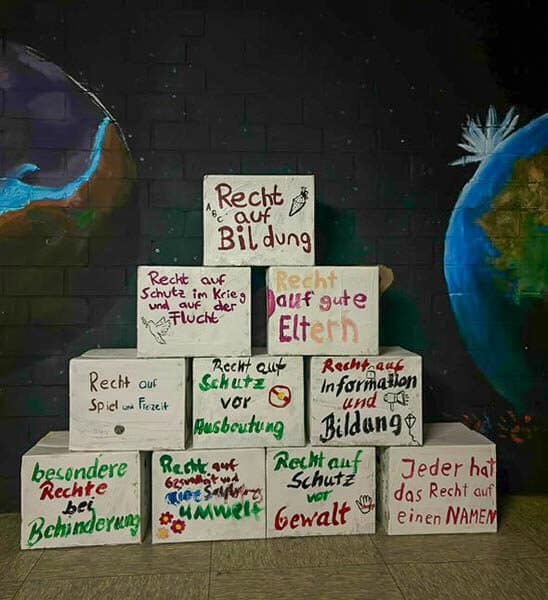 Recht
ABC
auf
Bildung
Recht auf
Schutz im Krieg
und auf der
Flucht
Recht
auf gute
Eltern
Recht auf
Spiel und Freizeit
Recht auf
Schutz
vor
Ausbeutung
Recht auf
Information
und
Bildung
besondere
Rechte
bei
Behinderung
Recht auf
Gesundheit und
eine
Umwelt
Recht auf
Schutz
vor
Gewalt
Jeder hat
das Recht auf
einen NAMEN